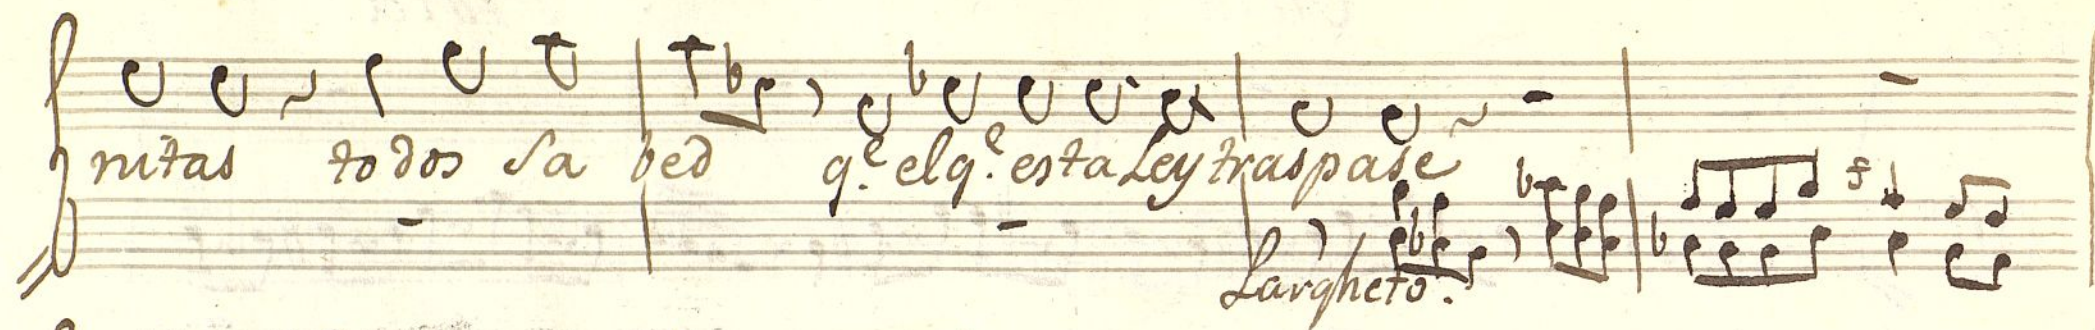 nitas todos Sabed q.e el q.e esta Ley traspase
Largheto.